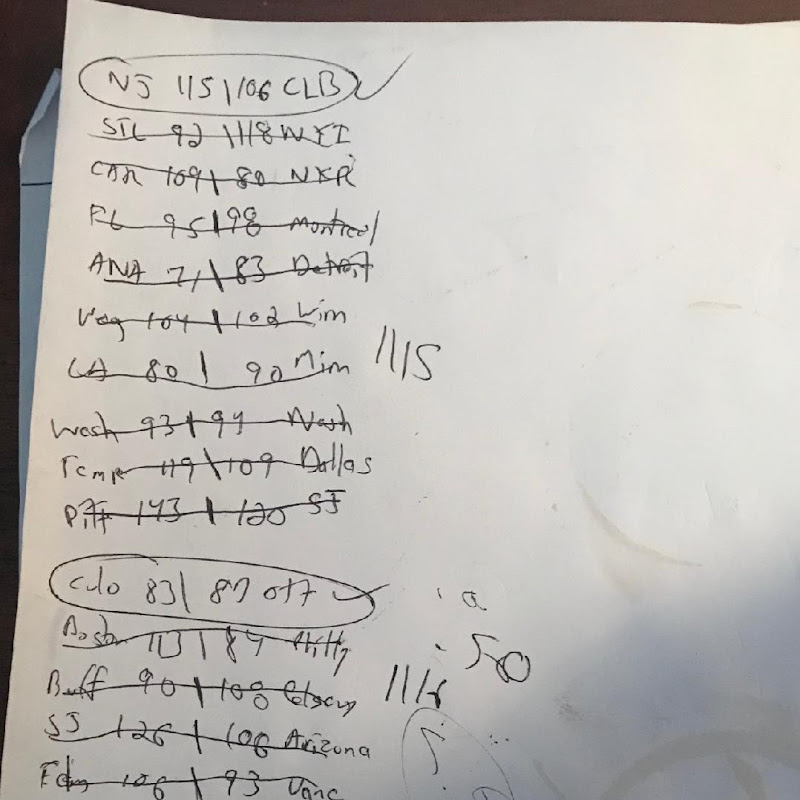 NJ 115 | 106 CLB
STL 92 | 118 NYI
CAR 109 | 80 NYR
FL 95 | 98 Montreal
ANA 71 | 83 Detroit
Veg 104 | 102 Winn
LA 80 | 90 Minn
11/15
Wash 93 | 94 Nash
Temp 119 | 109 Dallas
Pitt 143 | 120 SJ
Colo 83 | 87 Ott
Bost 113 | 84 Philly
50
Buff 90 | 108 Calgary
11/16
SJ 126 | 106 Arizona
Edm 106 | 93 Vanc